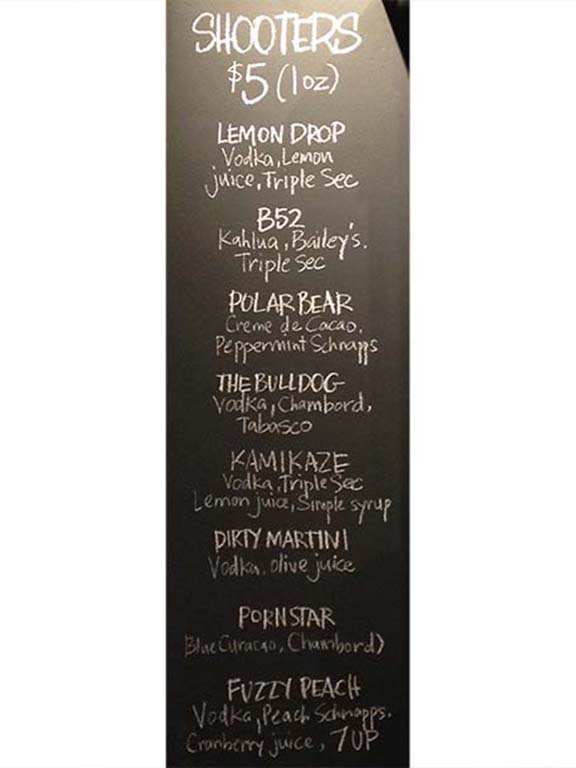 SHOOTERS
$5 (1oz)
LEMON DROP
Vodka, Lemon
juice, Triple Sec
B52
Kahlua, Bailey's.
Triple Sec
POLAR BEAR
Creme de Cacao.
Peppermint Schnapps
THE BULLDOG
Vodka, Chambord,
Tabasco
KAMIKAZE
Vodka, Triple Sec
Lemon juice, Simple syrup
DIRTY MARTINI
Vodka. olive juice
PORNSTAR
Blue Curacao, Chambord)
FUZZY PEACH
Vodka, Peach Schnapps.
Cranberry juice, 7UP